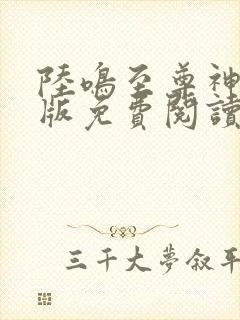 陸鳴至尊神
版免費閱讀
三千大夢叙平